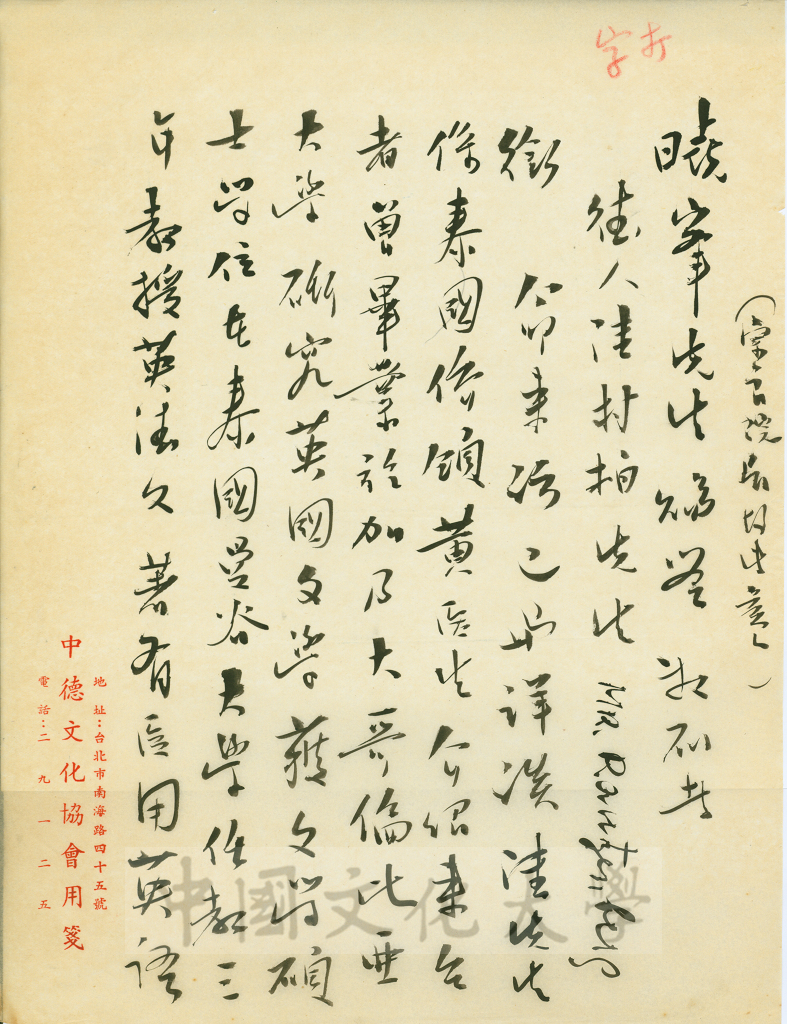 打字
曉峯先生賜鑒 敬啟者
德人陸村柏先生 Mr. Rautenberg
銜 命來訪已與詳談陸先生
係泰國僑領黃医生介紹來台
者曾畢業於加乃大哥倫比亞
大學研究英國文學獲文學碩
士學位在泰國曼谷大學任教三
年教授英德文 著有医用英語
地址:台北市南海路四十五號
中德文化協會用箋
電話:二九一二五
中國文化大學